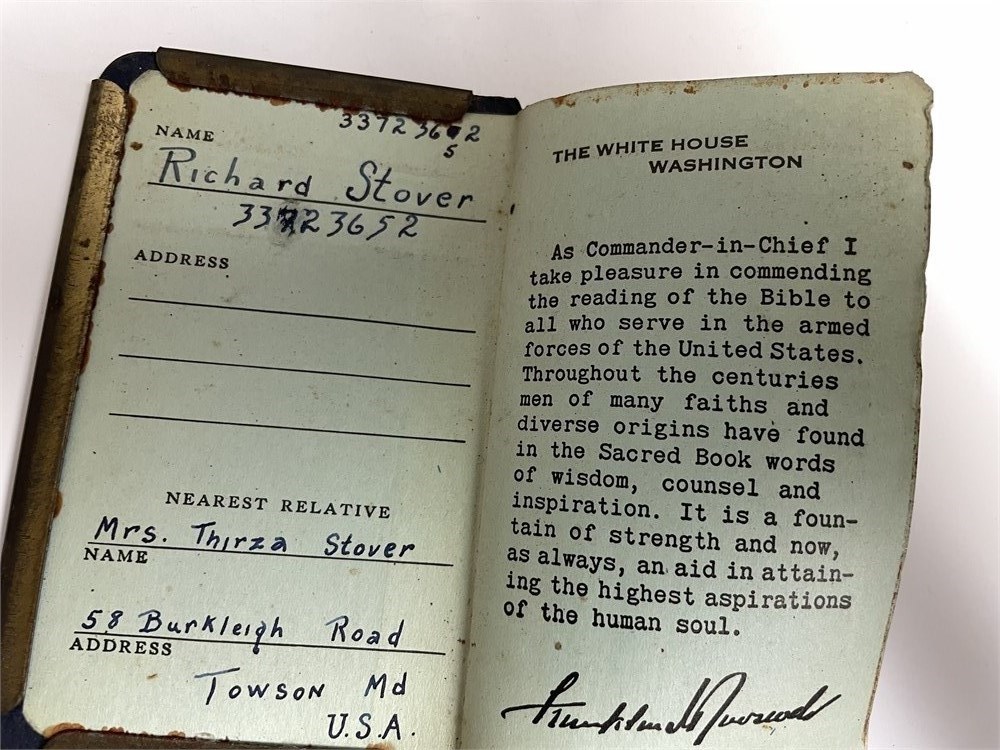 33723652
5
NAME
Richard Stover
33723652
ADDRESS
NEAREST RELATIVE
Mrs. Thirza Stover
NAME
58 Burkleigh Road
ADDRESS
Towson Md
U.S.A.
THE WHITE HOUSE
WASHINGTON
As Commander-in-Chief I
take pleasure in commending
the reading of the Bible to
all who serve in the armed
forces of the United States.
Throughout the centuries
men of many faiths and
diverse origins have found
in the Sacred Book words
of wisdom, counsel and
inspiration. It is a foun-
tain of strength and now,
as always, an aid in attain-
ing the highest aspirations
of the human soul.
Franklin D Roosevelt